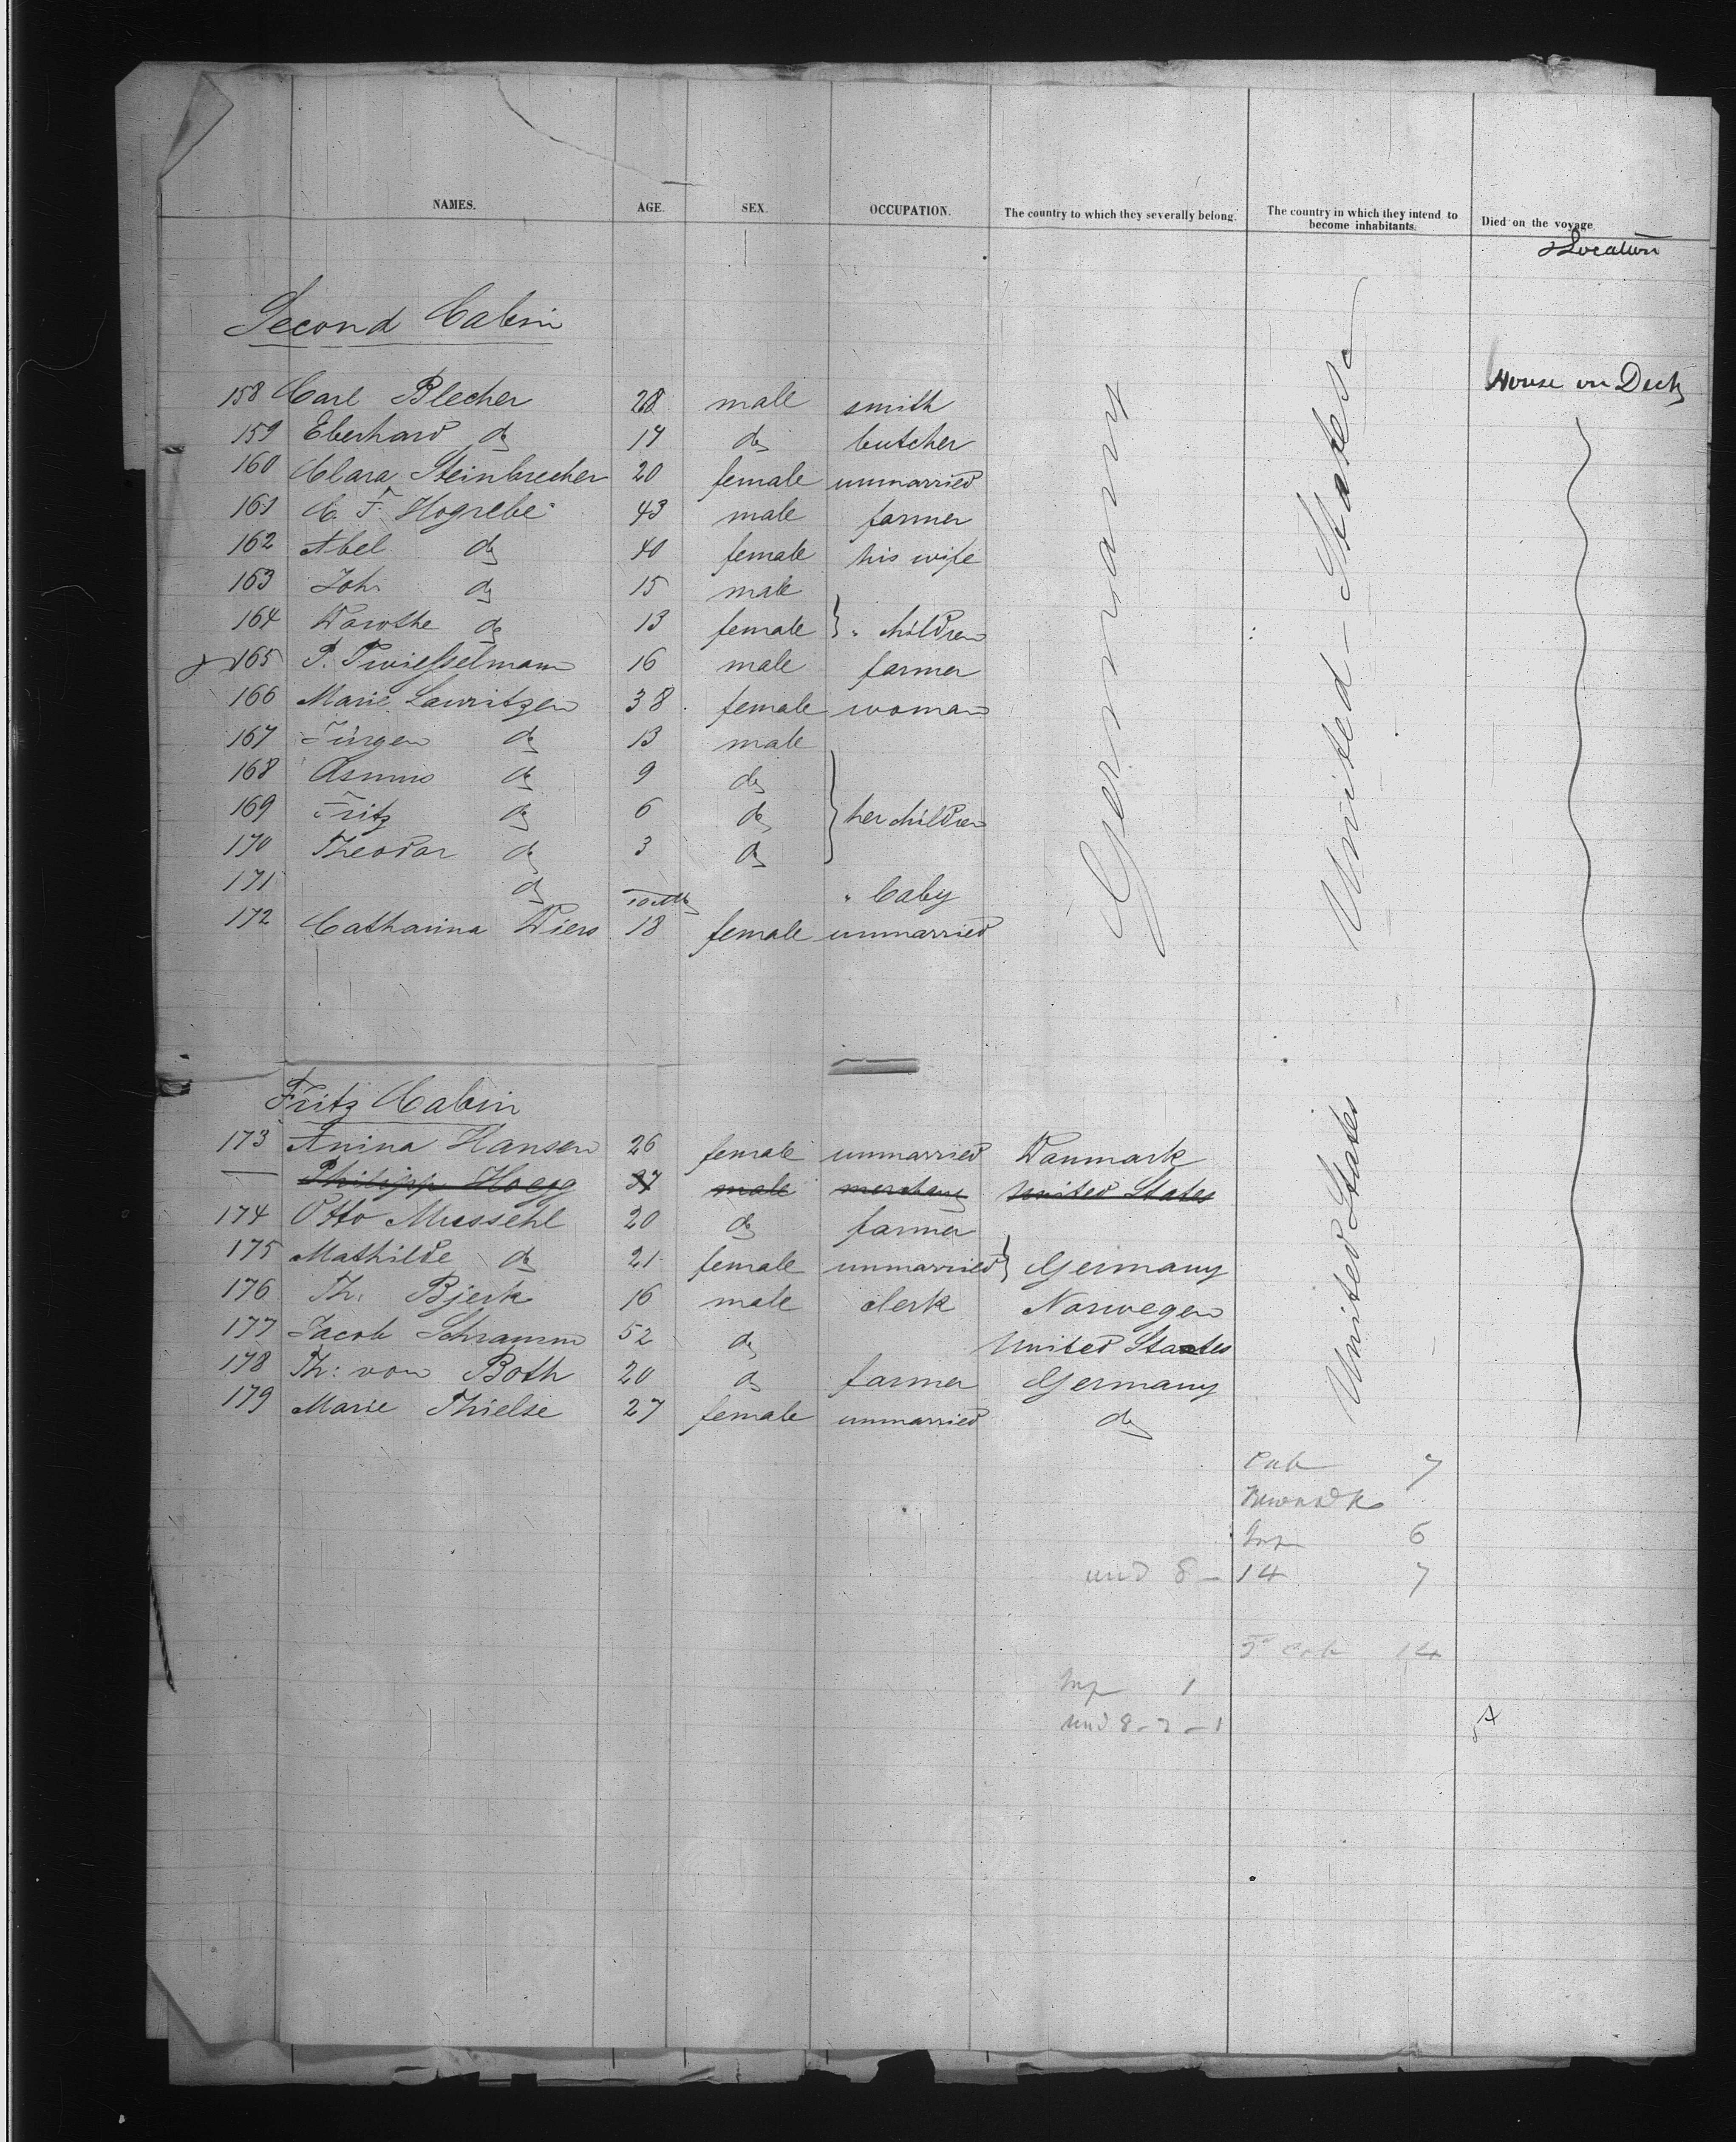 NAMES. AGE. SEX. OCCUPATION. The country to which they severally belong. The country in which they intend to become inhabitants. Died on the voyage.
Location
Second Cabin
House on Deck
158 Carl Blecher 28 male smith
159 Eberhard do 17 do butcher
160 Clara Steinbrecher 20 female unmarried
161 C. F. Hogrebe 43 male farmer
162 Abel do 40 female his wife
163 Joh. do 15 male
164 Dorothe do 13 female } " children
165 P. Twiesselmann 16 male farmer
166 Marie Lauritzen 38 female woman
167 Jürgen do 13 male
168 Asmus do 9 do
169 Fritz do 6 do } her children
170 Theodor do 3 do
171 do 10 Mth " baby
172 Catharina Wiers 18 female unmarried
Germany
United States
Fritz Cabin
173 Anina Hansen 26 female unmarried Danmark
— Philipp Hoegg 37 male merchant United States
174 Otto Mussehl 20 do farmer
175 Mathilde do 21 female unmarried } Germany
176 Th. Bjerk 16 male clerk Norwegen
177 Jacob Schramm 52 do United States
178 Th: von Both 20 do farmer Germany
179 Marie Thielse 27 female unmarried do
United States
Cab 7
6
und 8 - 14 7
Cab 14
1
und 8 - 2 - 1